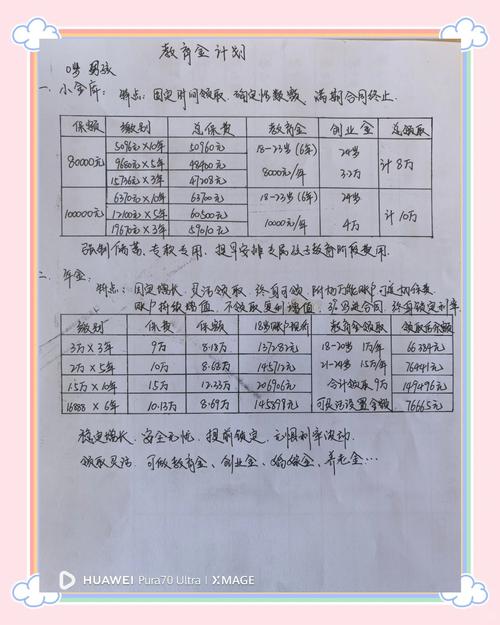 教育金计划
0岁 男孩
一、小金库: 特点: 固定时间领取、确定性数额、满期合同终止.
保额 缴别 总保费 教育金 创业金 总领取
80000元 5096元×10年 50960元 18-23岁 (6年) 24岁 计8万
9680元×5年 48400元 8000元/年 3.2万
15736元×3年 47208元
100000元 6370元×10年 63700元 18-23岁 (6年) 24岁 计10万
12100元×5年 60500元 10000元/年 4万
19670元×3年 59010元
强制储蓄、专款专用、提早安排专属孩子教育阶段费用.
二、年金:
特点: 固定增长、灵活领取、终身可领、附加万能账户可追加保费
账户持续增值、不领取复利增值、3%写进合同、终身锁定利率.
缴别 保费 保额 18岁账户现价 教育金领取 领取后余额
3万×3年 9万 8.18万 137282元 18-20岁 1万/年 66384元
2万×5年 10万 8.68万 145712元 21-24岁 1.5万/年 76441元
1.5万×10年 15万 12.33万 206906元 合计领取9万 149496元
16888×6年 10.13万 8.69万 145899元 可灵活设置金额 76665元
稳定增长、安全无忧、提前锁定、无惧利率波动.
领取灵活: 可做教育金、创业金、婚嫁金、养老金…
HUAWEI Pura70 Ultra | XMAGE